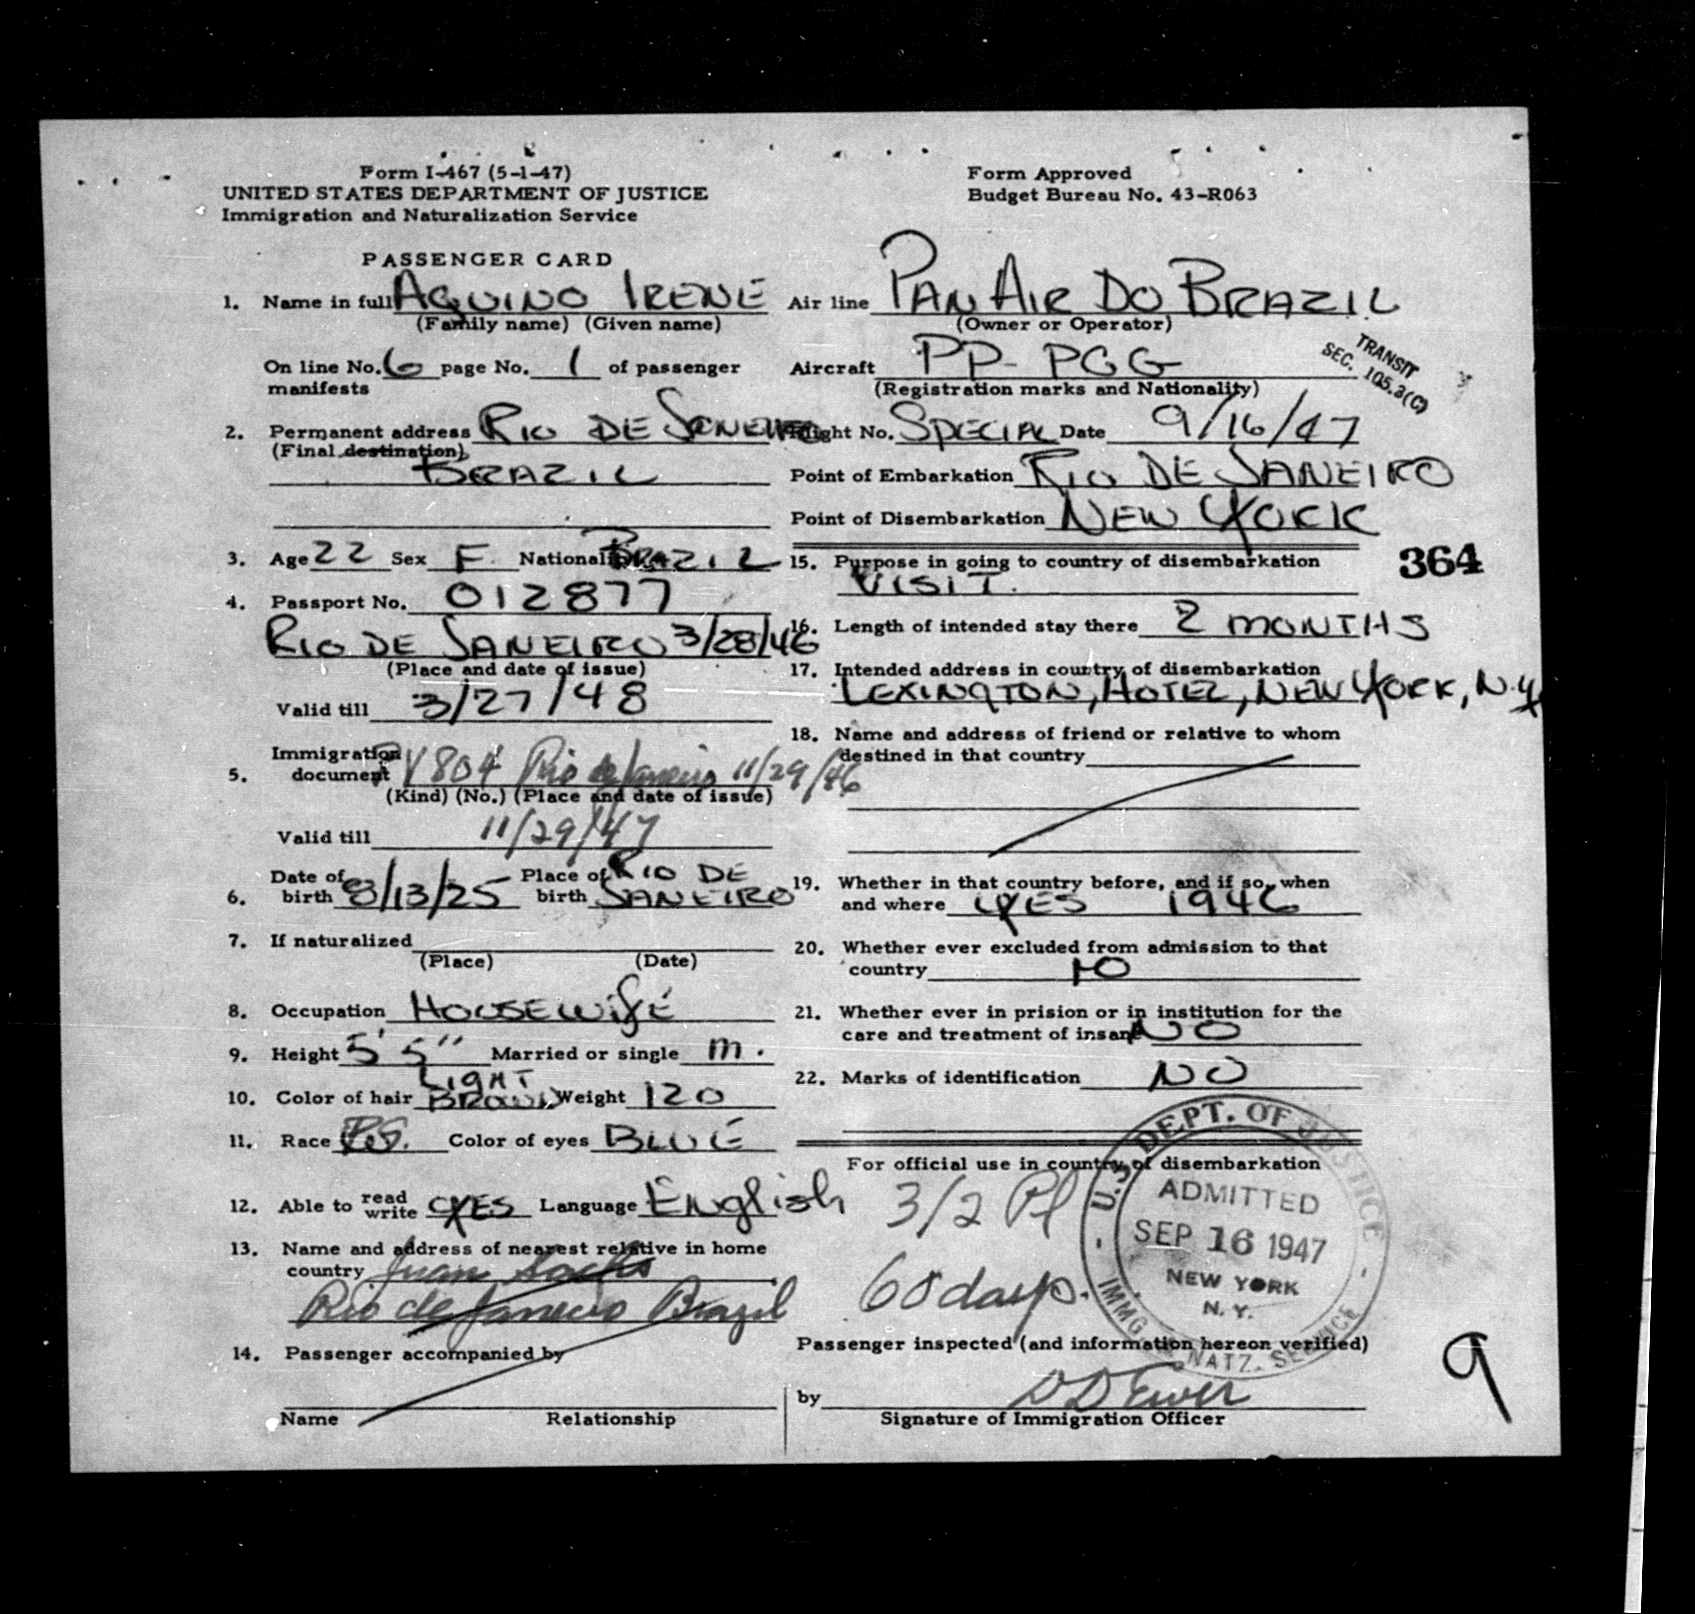 Form I-467 (5-1-47)
UNITED STATES DEPARTMENT OF JUSTICE
Immigration and Naturalization Service
Form Approved
Budget Bureau No. 43-R063
PASSENGER CARD
1. Name in full AQUINO IRENE
(Family name) (Given name)
On line No. 6 page No. 1 of passenger
manifests
2. Permanent address RIO DE JANEIRO
(Final destination)
BRAZIL
3. Age 22 Sex F. Nationality BRAZIL
4. Passport No. 012877
RIO DE JANEIRO 3/28/46
(Place and date of issue)
Valid till 3/27/48
Immigration
5. document PV 804 Rio de Janeiro 11/29/46
(Kind) (No.) (Place and date of issue)
Valid till 11/29/47
6. Date of birth 8/13/25 Place of birth RIO DE JANEIRO
7. If naturalized
(Place) (Date)
8. Occupation HOUSEWIFE
9. Height 5' 5" Married or single M.
10. Color of hair LIGHT BROWN Weight 120
11. Race Color of eyes BLUE
12. Able to read write YES Language English
13. Name and address of nearest relative in home
country Juan
Rio de Janeiro Brazil
14. Passenger accompanied by
Name Relationship
Air line PAN AIR DO BRAZIL
(Owner or Operator)
Aircraft PP-PGG
(Registration marks and Nationality)
TRANSIT
SEC. 105.3(C)
Flight No. SPECIAL Date 9/16/47
Point of Embarkation RIO DE JANEIRO
Point of Disembarkation NEW YORK
15. Purpose in going to country of disembarkation
VISIT.
364
16. Length of intended stay there 2 MONTHS
17. Intended address in country of disembarkation
LEXINGTON, HOTEL, NEW YORK, N.Y.
18. Name and address of friend or relative to whom
destined in that country
19. Whether in that country before, and if so, when
and where YES 1946
20. Whether ever excluded from admission to that
country NO
21. Whether ever in prision or in institution for the
care and treatment of insane NO
22. Marks of identification NO
For official use in country of disembarkation
3/2
60 days.
U.S. DEPT. OF JUSTICE
ADMITTED
SEP 16 1947
NEW YORK
N. Y.
IMMG. NATZ. SERVICE
Passenger inspected (and information hereon verified)
by
Signature of Immigration Officer
9